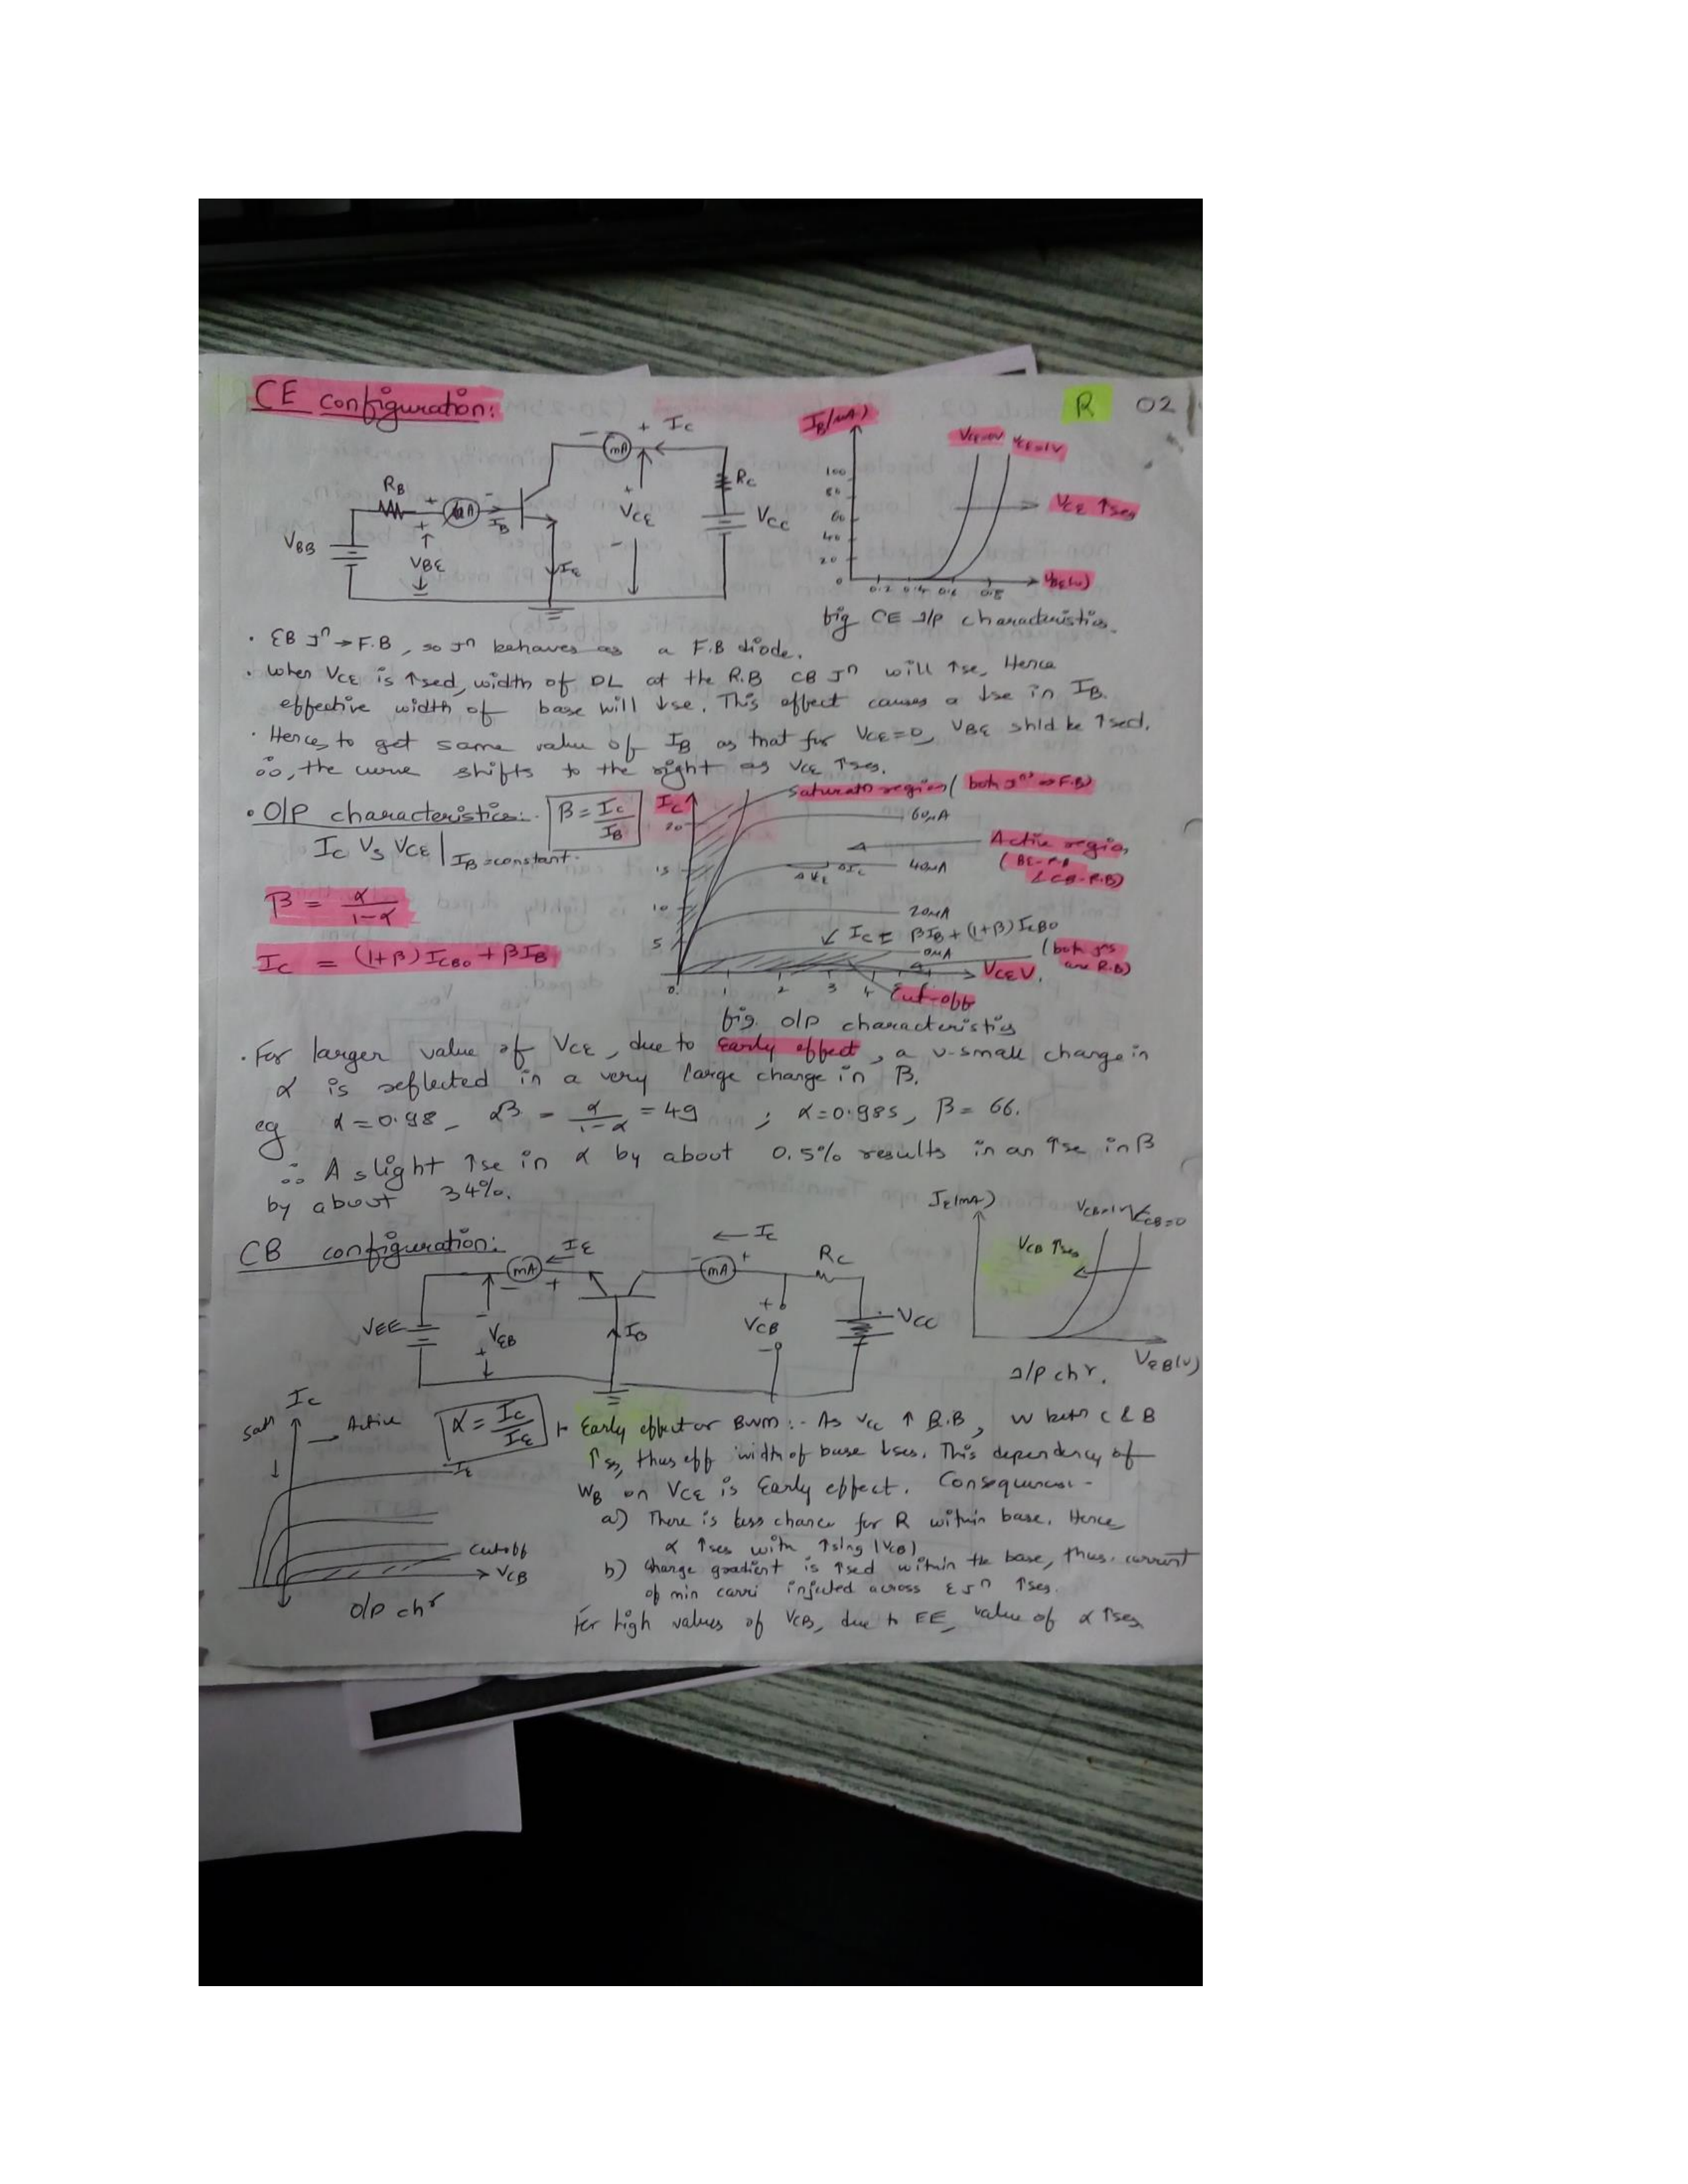 CE configuration:
R 02
+ Ic
mA
RB
+
-
IB
RC
VCC
VCE
VBB
VBE
IE
IB(μA)
VCE=0V VCE=1V
VCE ↑ses
100
80
60
40
20
0
0.2 0.4 0.6 0.8
VBE(v)
fig CE I/p characteristics.
· EB Jⁿ→F.B, so Jⁿ behaves as a F.B diode.
· When VCE is ↑sed, width of DL at the R.B CB Jⁿ will ↑se. Hence
effective width of base will ↓se. This effect causes a ↓se in IB.
· Hence, to get same value of IB as that for VCE=0, VBE shld be ↑sed.
∴, the curve shifts to the right as VCE ↑ses.
· O/P characteristics:- β = IC/IB
IC Vs VCE | IB=constant.
β = α/1-α
IC = (1+β) ICBO + βIB
IC
20
15
10
5
0 1 2 3 4
saturatn region (both Jⁿs → F.B)
60μA
Active region
(BE-F.B
& CB-R.B)
40μA
ΔIC
20μA
IC = βIB + (1+β) ICBO
0μA
(both Jⁿs
are R.B)
VCE V.
Cut-off
fig. O/P characteristics
· For larger value of VCE, due to Early effect, a v-small change in
α is reflected in a very large change in β.
eg α=0.98, β = α/1-α = 49 ; α=0.985, β= 66.
∴ A slight ↑se in α by about 0.5% results in an ↑se in β
by about 34%.
CB configuration:
IE
IC
mA
mA
RC
VEE
VEB
IB
VCB
VCC
IE(mA)
VCB=1V VCB=0
VCB ↑ses
VEB(v)
I/p chr.
IC
Satn
Active
IE
cutoff
VCB
O/P chr
α = IC/IE
Early effect or BWM :- As VCC ↑ R.B, W betn C & B
↑ses, thus eff width of base ↓ses. This dependency of
WB on VCE is Early effect. Consequences-
a) There is less chance for R within base. Hence
α ↑ses with ↑sing |VCB|
b) Charge gradient is ↑sed within the base, thus, current
of min carri injected across E Jⁿ ↑ses.
For high values of VCB, due to EE, value of α ↑ses.